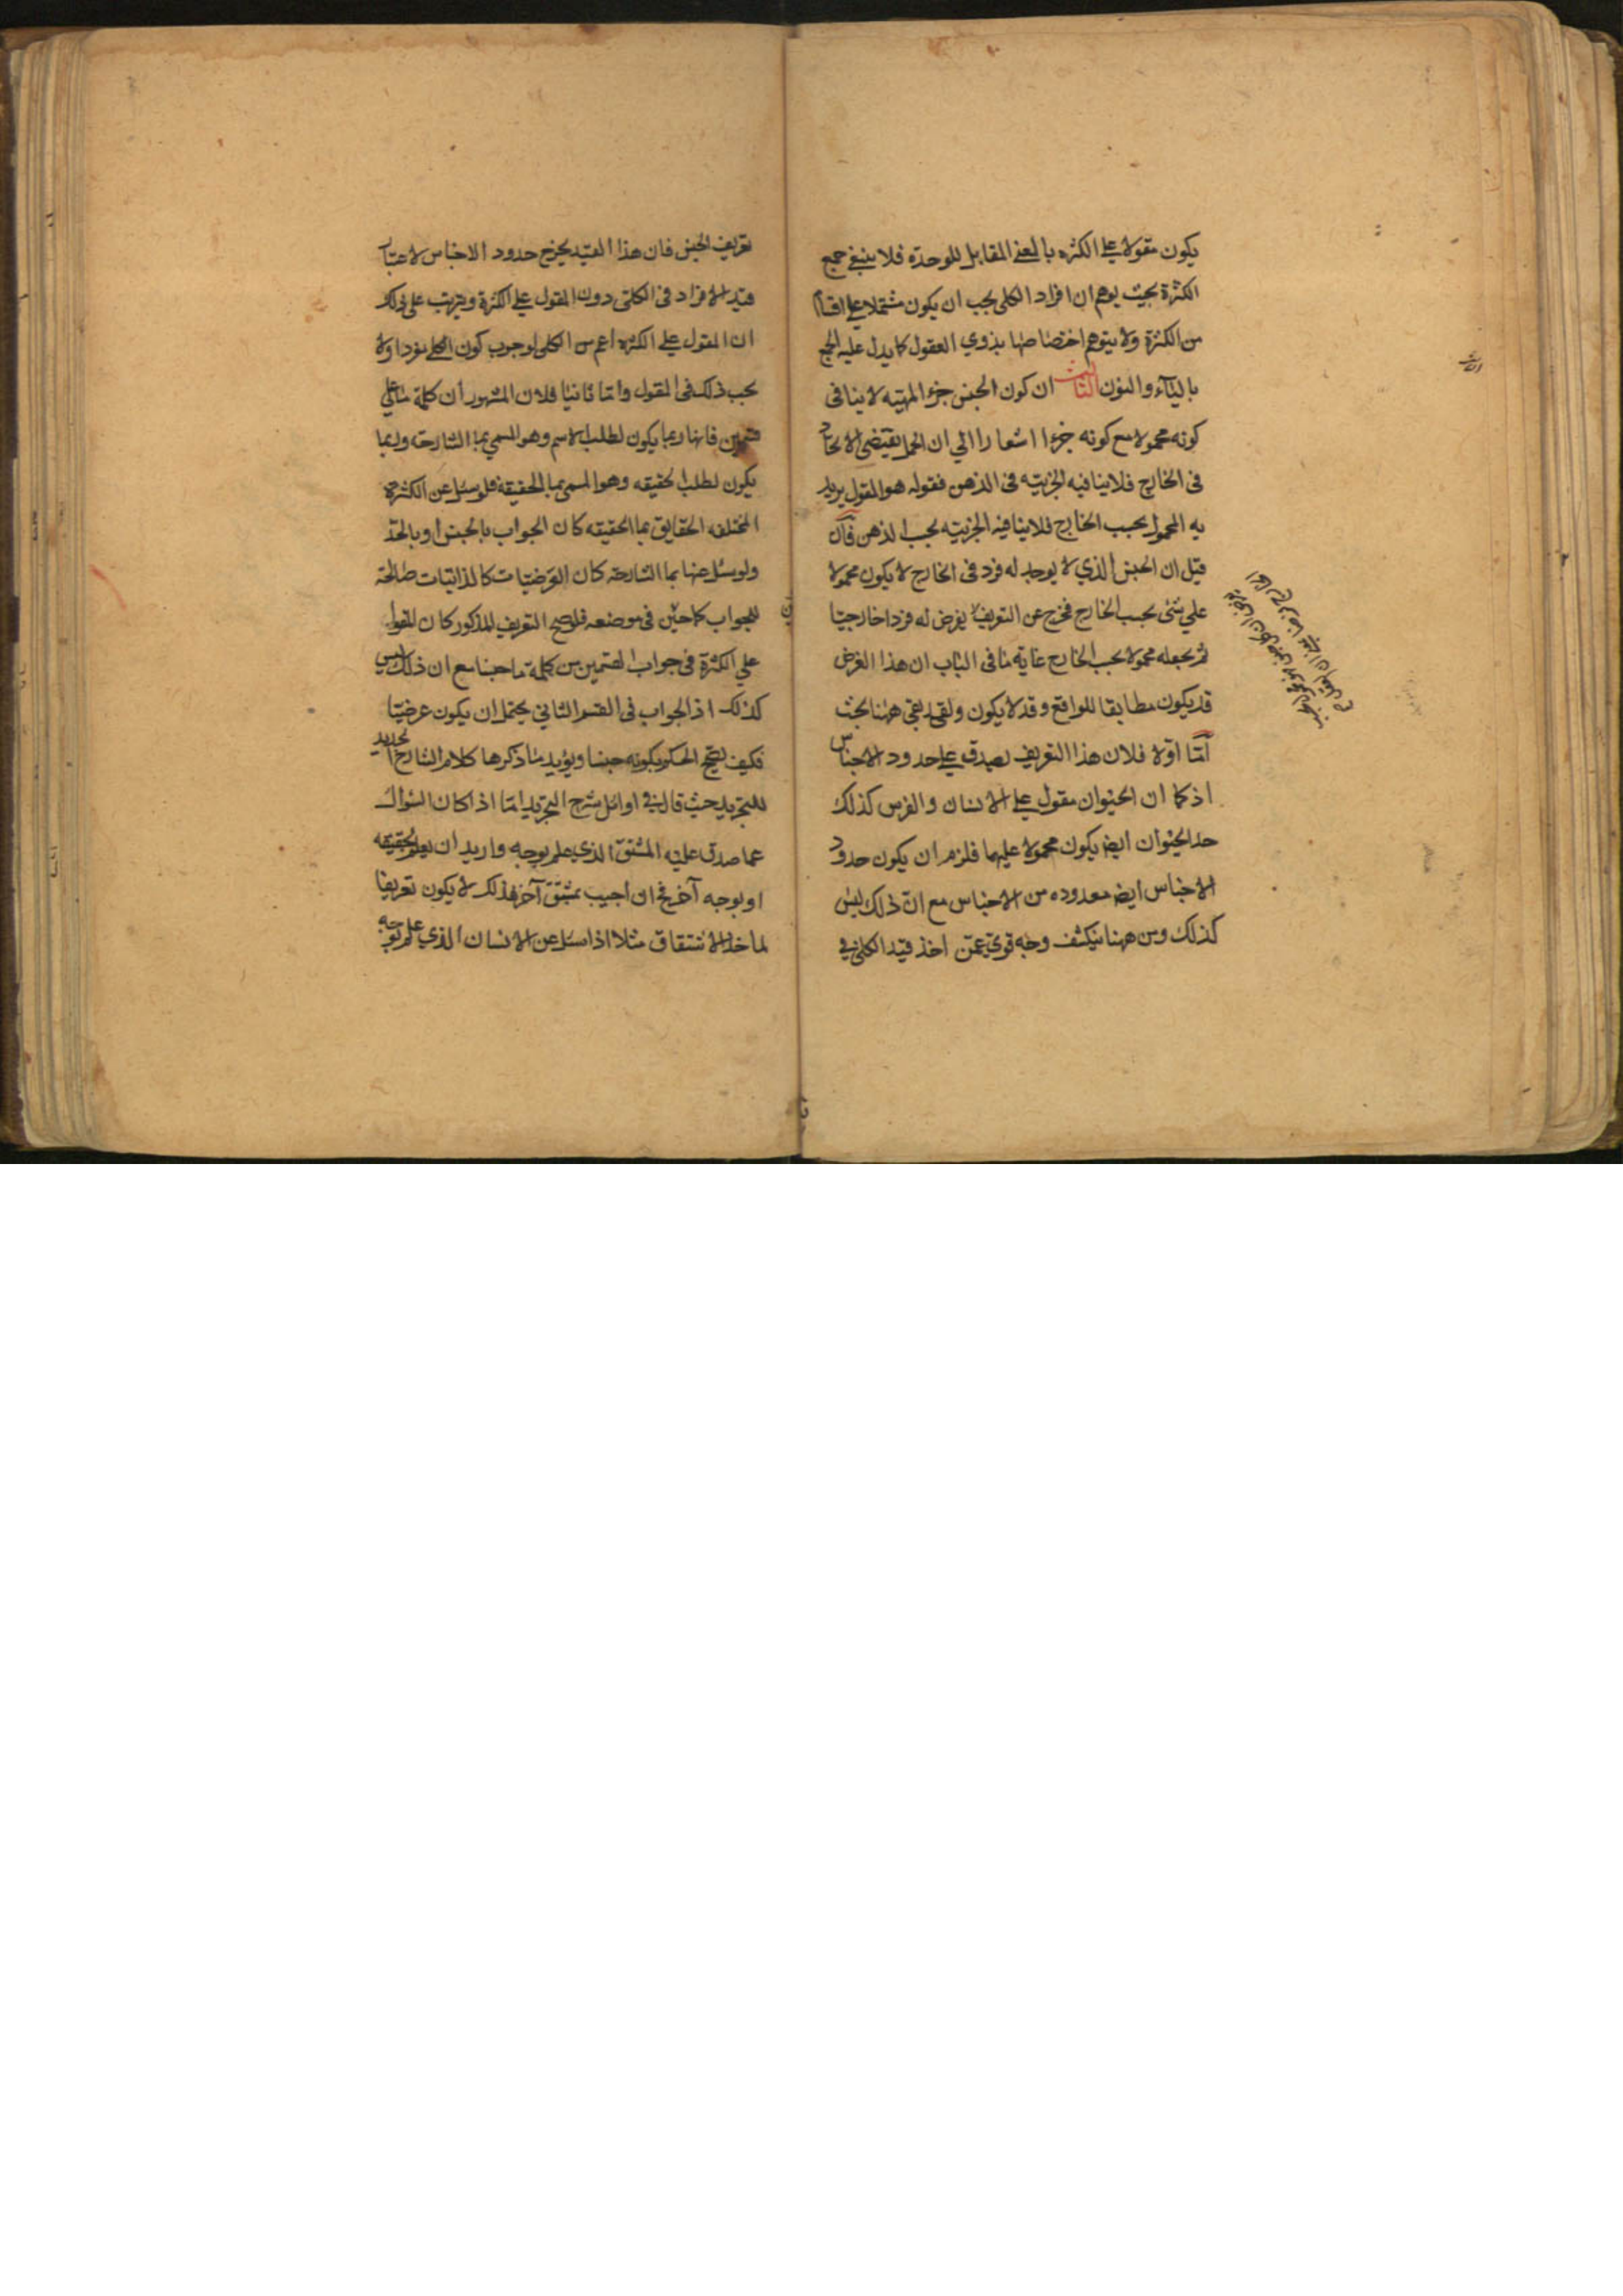 يكون مقولا على الكثره بالمعنى المقابل للوحدة فلا ينبغي جمع
الكثرة بحيث يوهم ان افراد الكلى يجب ان يكون مشتملا على اقسام
من الكثرة ولا يتوهم اختصاصها بذوي العقول كما يدل عليه الجمع
بالياء والنون الثالث ان كون الجنس جزء المهيه لا ينافى
كونه محمولا مع كونه جزءا اشعارا الي ان الحمل يقتضى الاتحاد
فى الخارج فلا ينافيه الجزئيه فى الذهن فقوله هو المقول يريد
به المحمول بحسب الخارج فلا ينافيه الجزئيه بحسب الذهن فان
قيل ان الجنس الذي لا يوجد له فرد فى الخارج لا يكون محمولا
علي شئ بحسب الخارج فخرج عن التعريف يفرض له فردا خارجيا
ثم يجعله محمولا بحسب الخارج غاية ما فى الباب ان هذا الفرض
قد يكون مطابقا للواقع وقد لا يكون ولقي بقي ههنا بحث
اما اولا فلان هذا التعريف يصدق على حدود الاجناس
اذ كما ان الحيوان مقول على الانسان والفرس كذلك
حد الحيوان ايض يكون محمولا عليهما فلزم ان يكون حدود
الاجناس ايض معدوده من الاجناس مع ان ذلك ليس
كذلك ومن ههنا ينكشف وجه قوي عمن اخذ قيد الكلى في
تعريف الجنس فان هذا القيد يخرج حدود الاجناس لاعتبار
قيد الافراد فى الكلى دون المقول على الكثرة ويترتب على ذلك
ان المقول على الكثره اعم من الكلى لوجوب كون الكلى مفردا ولا
يجب ذلك فى المقول واما ثانيا فلان المشهور ان كلمة ما على
قسمين فانها ربما يكون لطلب الاسم وهو المسمي بما الشارحة وربما
يكون لطلب الحقيقه وهو المسمى بما الحقيقة فلو سئل عن الكثرة
المختلفه الحقايق بما الحقيقه كان الجواب بالجنس او بالحد
ولو سئل عنها بما الشارحة كان العرضيات كالذاتيات صالحة
للجواب كما حين فى موضعه فلو صح التعريف المذكور كان المقول
علي الكثرة فى جواب القسمين من كلمة ما جنسا مع ان ذلك ليس
كذلك اذ الجواب فى القسم الثاني يحتمل ان يكون عرضيا
فكيف يصح الحكم بكونه جنسا ويؤيد ما ذكرها كلام الشارح الجديد
للتجريد حيث قال في اوائل شرح التجريد اما اذا كان السؤال
عما صدق عليه المشتق الذي علم بوجه واريد ان يعلم بحقيقه
او بوجه آخر فح ان اجيب بمشتق آخر فذلك لا يكون تعريفا
لماخذ الاشتقاق مثلا اذا سئل عن الانسان الذي علم بوجه